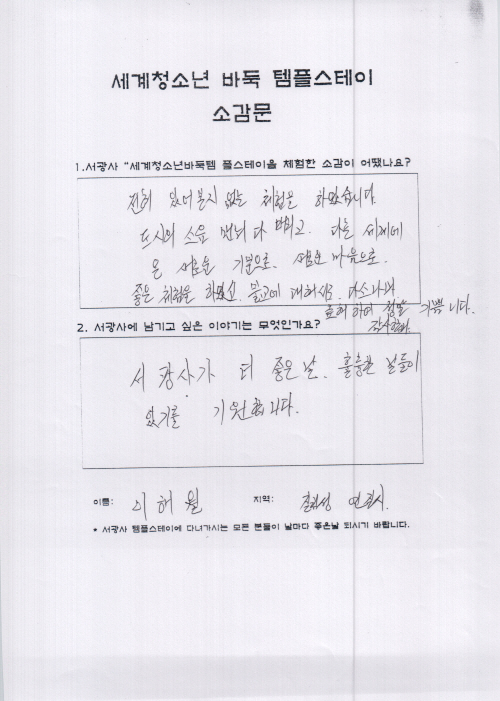 세계청소년 바둑 템플스테이
소감문
1.서광사 "세계청소년바둑템 플스테이을 체험한 소감이 어땠나요?
전혀 있어본지 없는 체험을 하였습니다.
도시의 소음 다 버리고. 다른 세계에
온 새로운 기분으로. 새로운 마음으로.
좋은 체험을 하였고. 불교에 대해서도 다소나마
하며 정말 기쁩니다.
감사합니다.
2. 서광사에 남기고 싶은 이야기는 무엇인가요?
서광사가 더 좋은 날. 훌륭한 날들이
있기를 기원합니다.
이름: 이해월 지역: 길림성 연길시.
* 서광사 템플스테이에 다녀가시는 모든 분들이 날마다 좋은날 되시기 바랍니다.